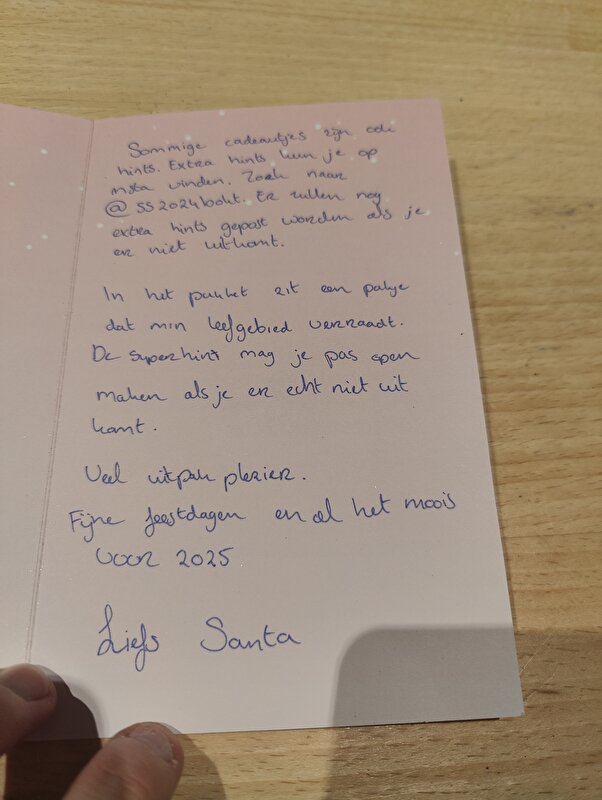 Sommige cadeautjes zijn ook
hints. Extra hints kun je op
insta vinden. Zoek naar
@SS2024bokt. Er zullen nog
extra hints gepost worden als je
er niet uitkomt.
In het pakket zit een pakje
dat mijn leefgebied verraadt.
De superhint mag je pas open
maken als je er echt niet uit
komt.
Veel uitpak plezier.
Fijne feestdagen en al het moois
voor 2025
Liefs Santa